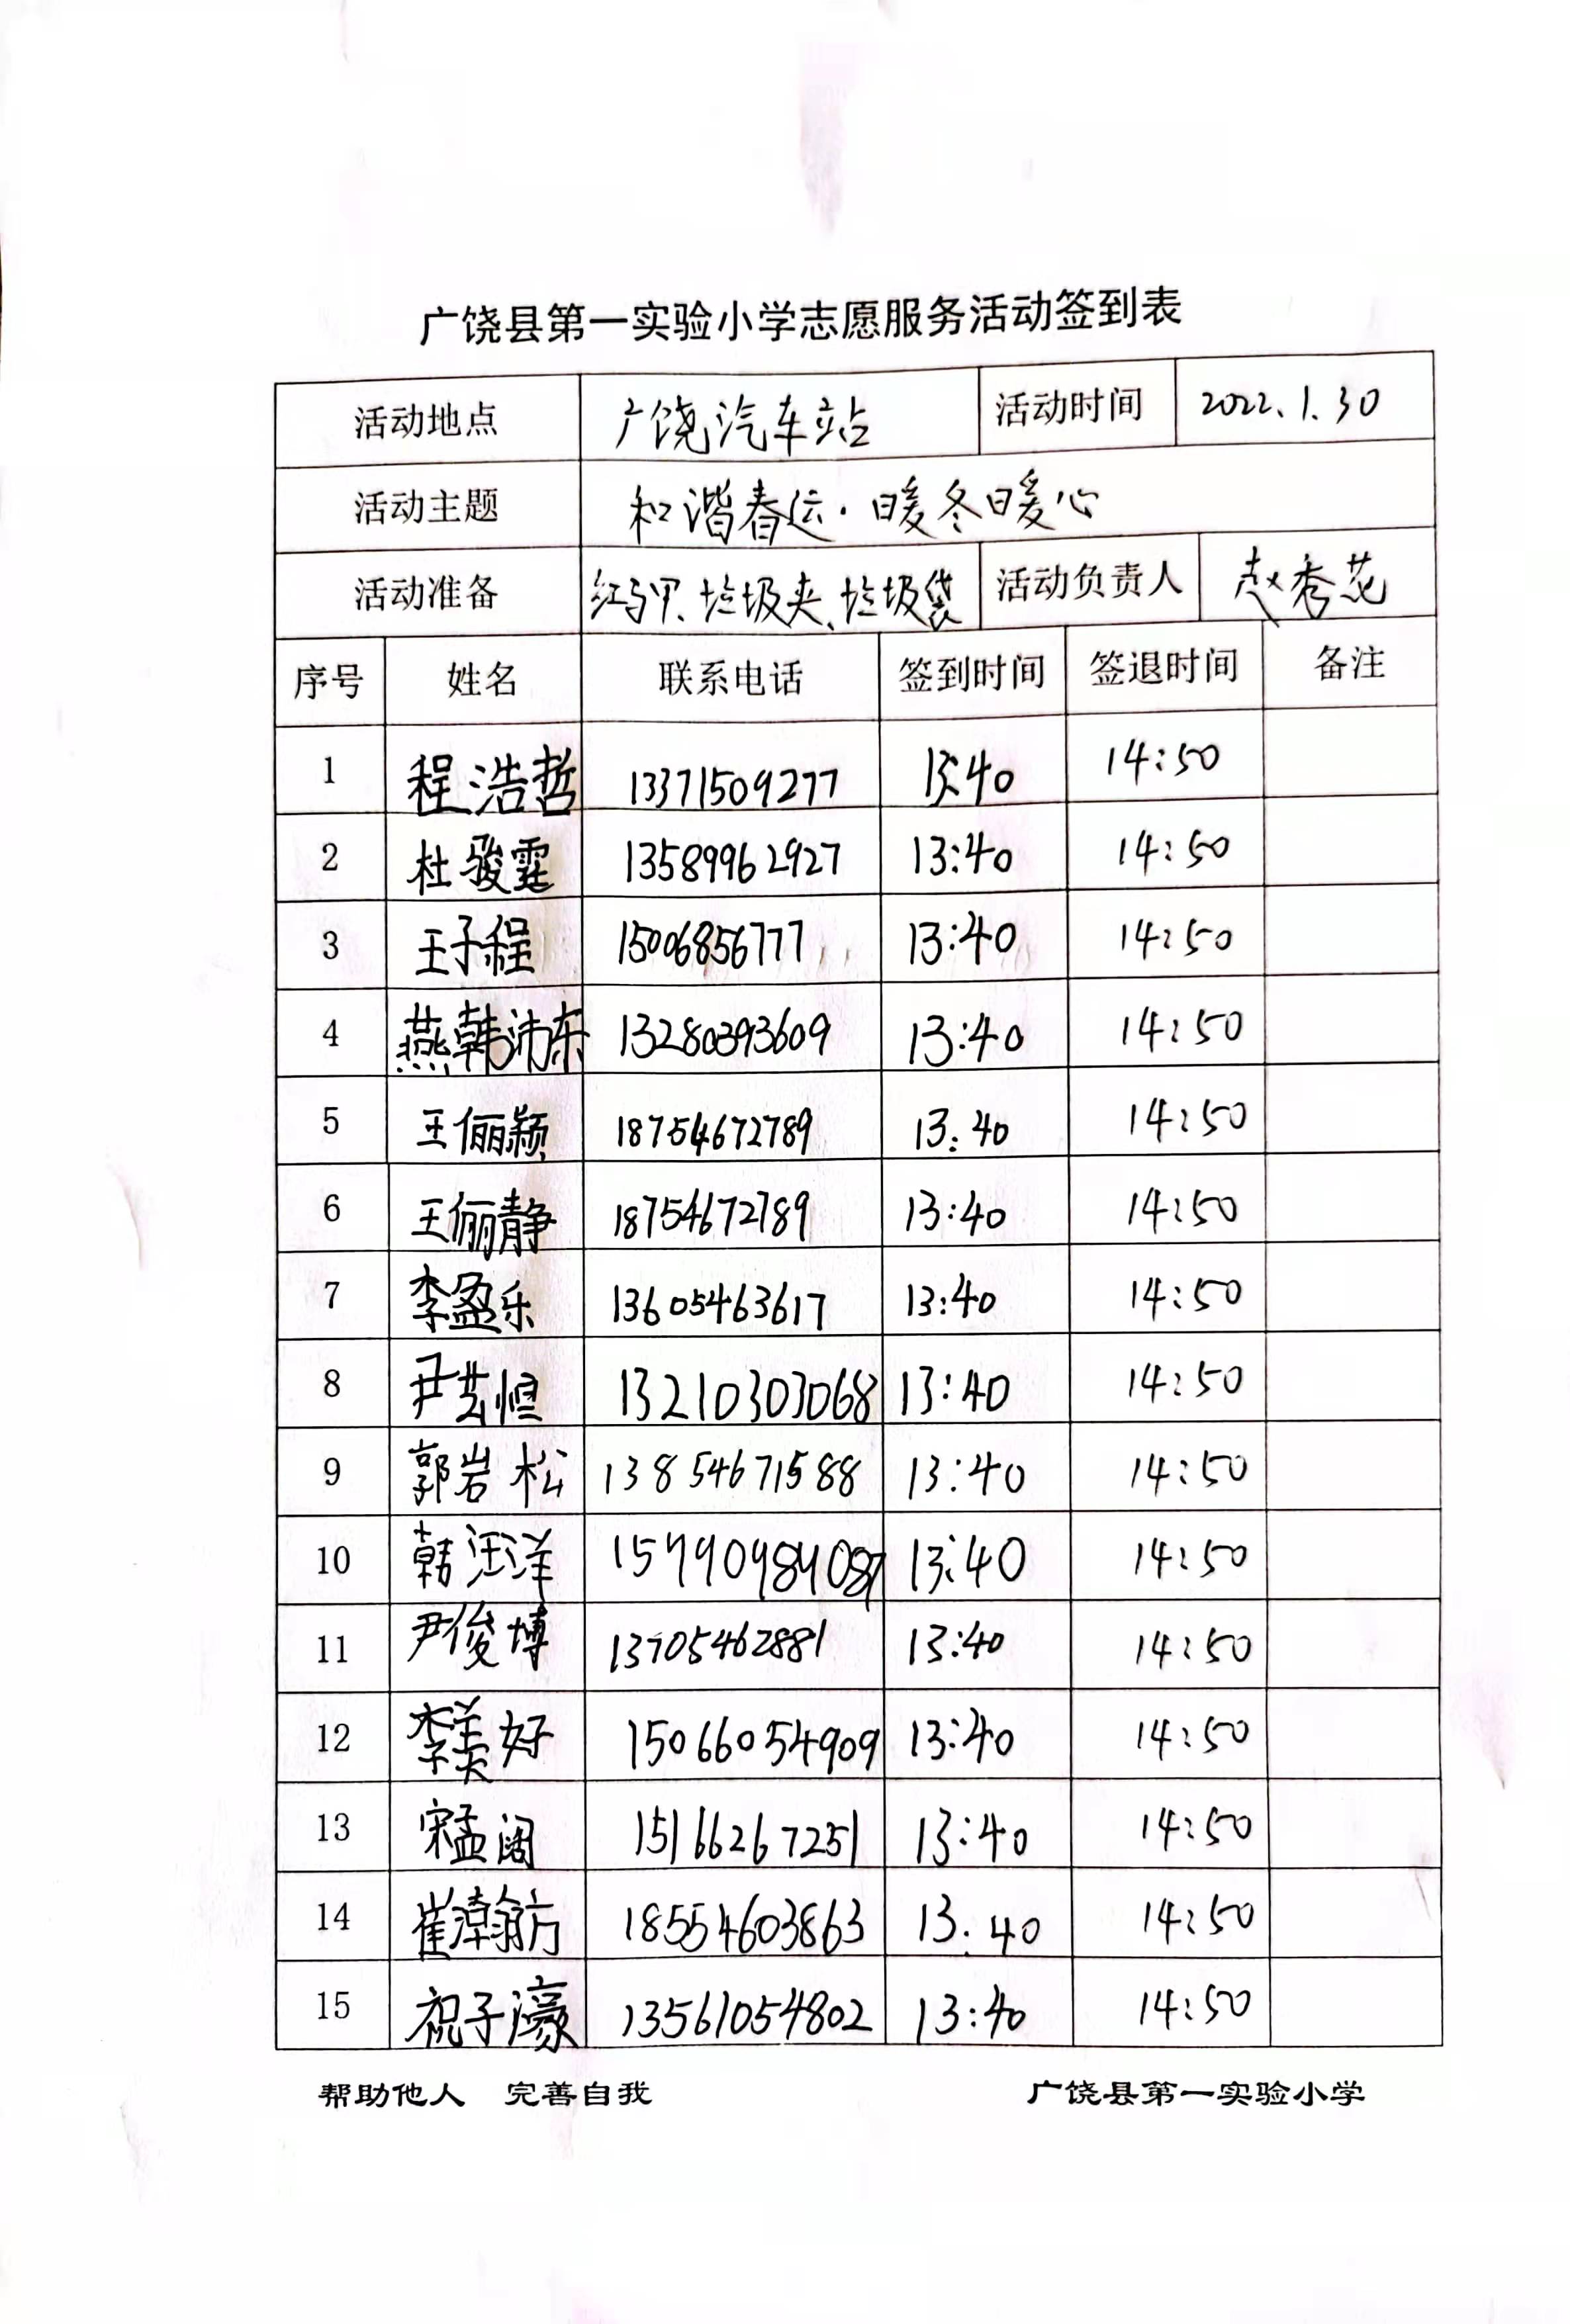 广饶县第一实验小学志愿服务活动签到表
活动地点 广饶汽车站 活动时间 2022.1.30
活动主题 和谐春运·暖冬暖心
活动准备 红马甲、垃圾夹、垃圾袋 活动负责人 赵秀花
序号 姓名 联系电话 签到时间 签退时间 备注
1 程浩哲 13371509277 13:40 14:50
2 杜骏霆 13589962927 13:40 14:50
3 王子程 15006856777 13:40 14:50
4 燕韩沛东 13280393609 13:40 14:50
5 王俪颖 18754672789 13:40 14:50
6 王俪静 18754672789 13:40 14:50
7 李盈乐 13605463617 13:40 14:50
8 尹芸恒 13210303068 13:40 14:50
9 郭岩松 13854671588 13:40 14:50
10 韩汪洋 13:40 14:50
11 尹俊博 13705462881 13:40 14:50
12 李美好 15066054909 13:40 14:50
13 宋孟阔 15166267251 13:40 14:50
14 崔瀚方 18554603863 13:40 14:50
15 祝子濠 13561054802 13:40 14:50
帮助他人 完善自我 广饶县第一实验小学